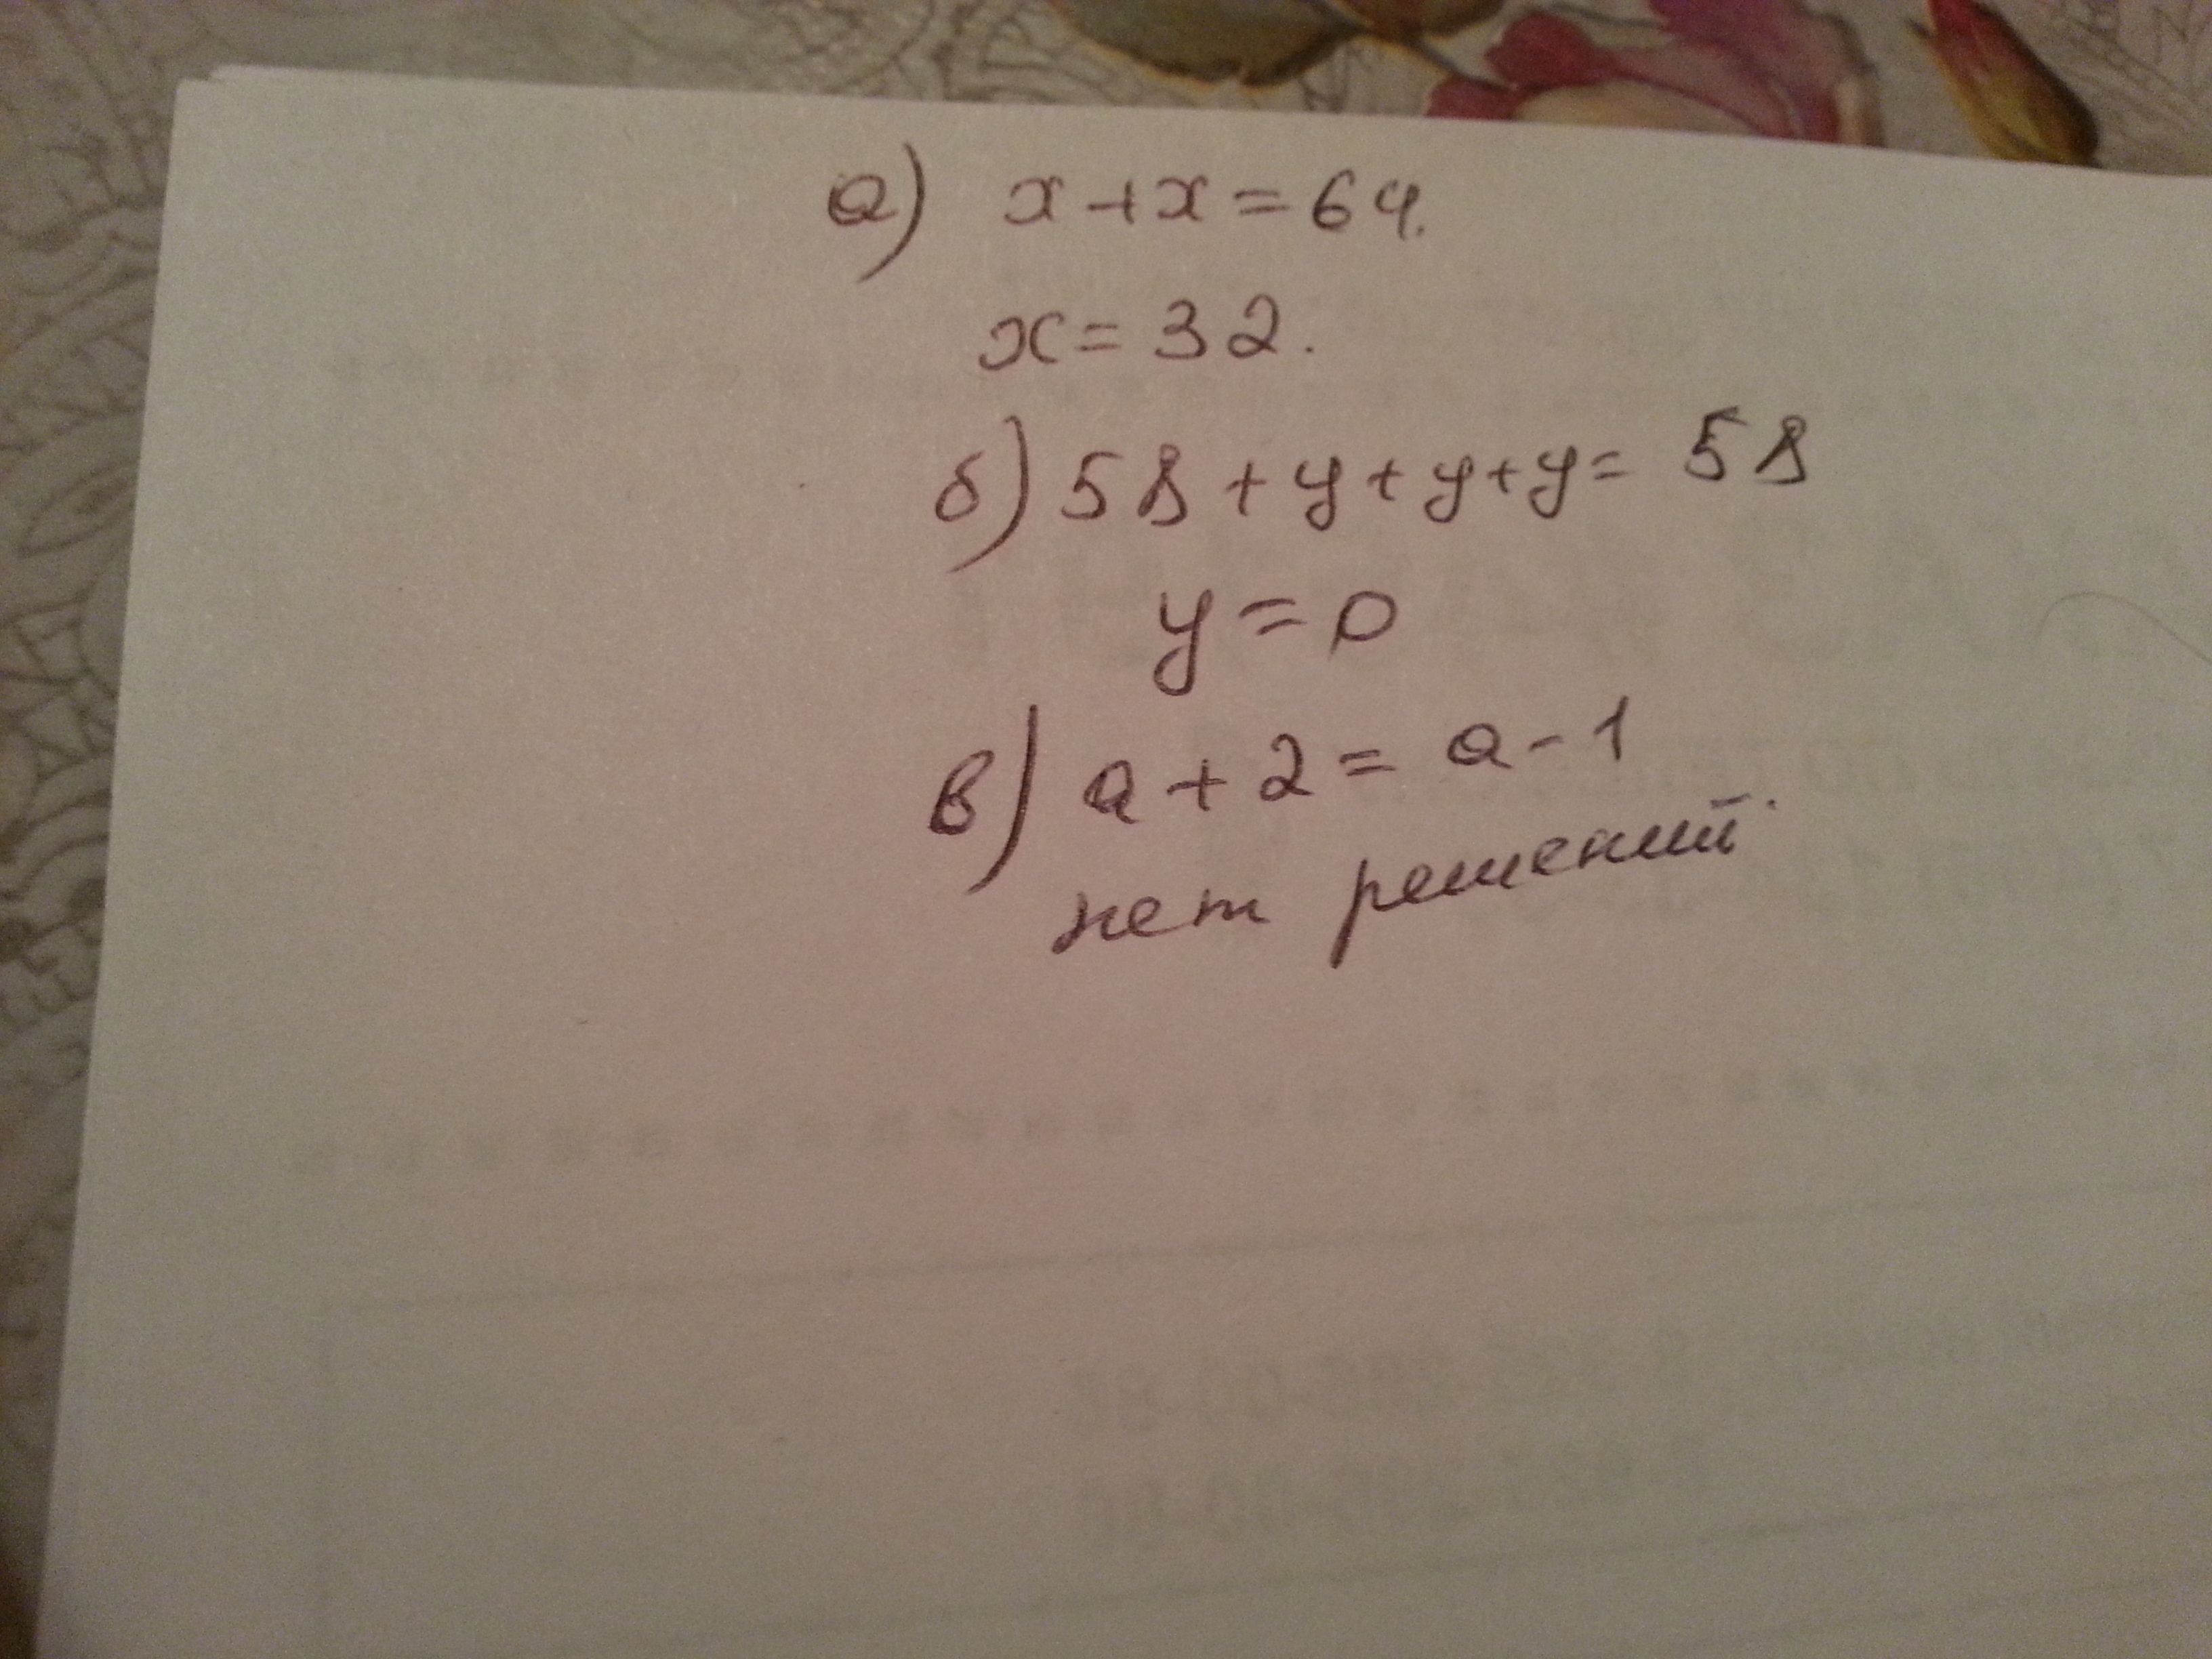 а) x + x = 64.
x = 32.
б) 58 + y + y + y = 58
y = 0
в) a + 2 = a - 1
нет решений.